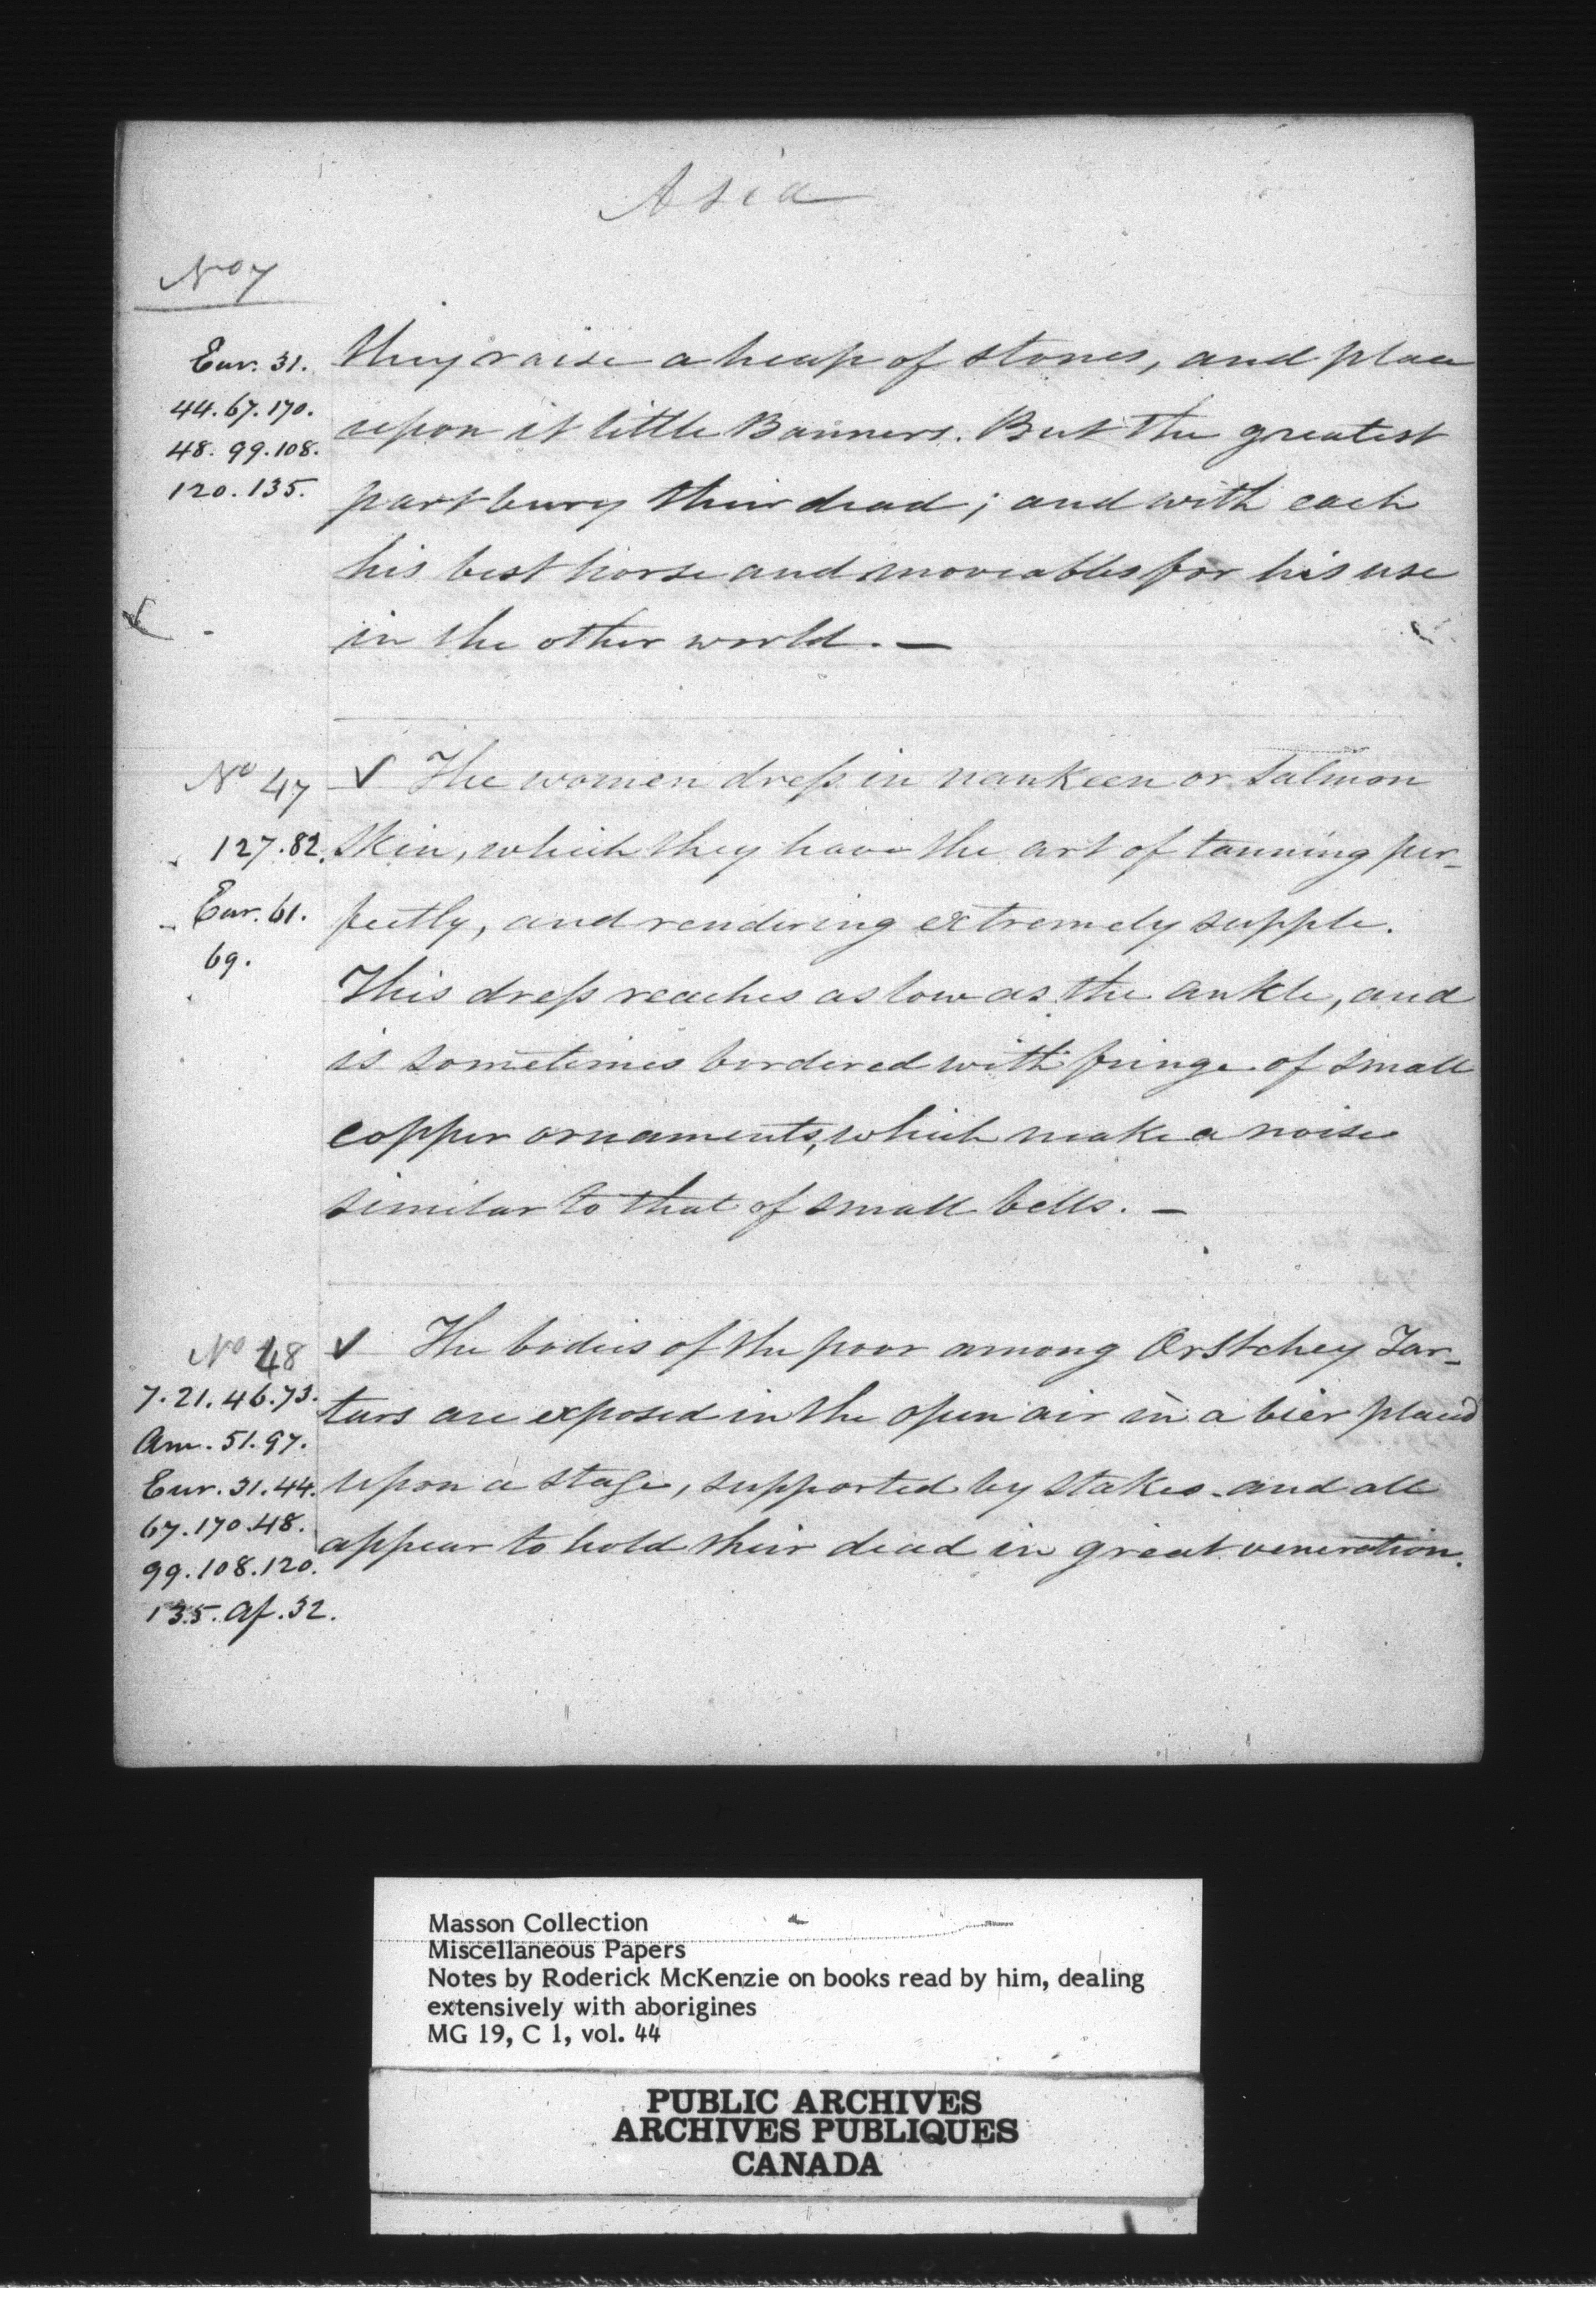 Asia
No 7
Eur. 31.
44. 67. 170.
48. 99. 108.
120. 135.
they raise a heap of stones, and place
upon it little Banners. But the greatest
part bury their dead; and with each
his best horse and moveables for his use
in the other world. —
No 47
127. 82.
Eur. 61.
69.
✓ The women dress in nankeen or salmon
skin, which they have the art of tanning per-
fectly, and rendering extremely supple.
This dress reaches as low as the ankle, and
is sometimes bordered with fringe of small
copper ornaments, which make a noise
similar to that of small bells. —
No 48
7. 21. 46. 73.
Am. 51. 97.
Eur. 31. 44.
67. 170. 48.
99. 108. 120.
135. Af. 32.
✓ The bodies of the poor among Orstchey Tar-
tars are exposed in the open air in a bier placed
upon a stage, supported by stakes and all
appear to hold their dead in great veneration.
Masson Collection
Miscellaneous Papers
Notes by Roderick McKenzie on books read by him, dealing
extensively with aborigines
MG 19, C 1, vol. 44
PUBLIC ARCHIVES
ARCHIVES PUBLIQUES
CANADA